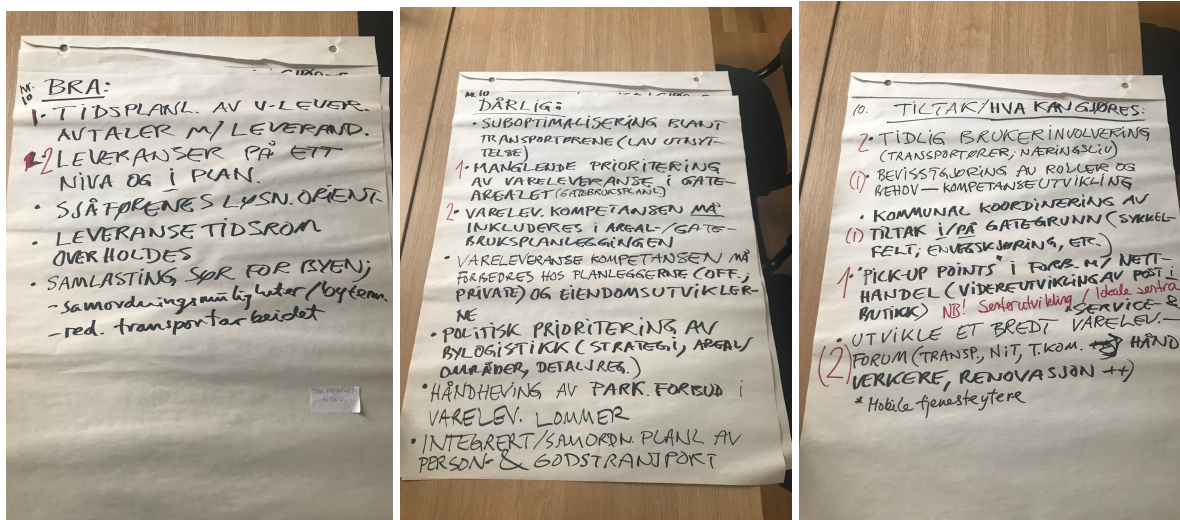 Nr. 10
BRA:
1. TIDSPLANL. AV V-LEVER.
AVTALER M/ LEVERAND.
2 LEVERANSER PÅ ETT
NIVA OG I PLAN.
• SJÅFØRENES LYSN. ORIENT.
• LEVERANSETIDSROM
OVERHOLDES
• SAMLASTING SØR FOR BYEN;
- samordningsmuligheter/byterm.
- red. transportarbeidet
Nr. 10
DÅRLIG:
• SUBOPTIMALISERING BLANT
TRANSPORTØRENE (LAV UTNYT-
TELSE)
1• MANGLENDE PRIORITERING
AV VARELEVERANSE I GATE-
AREALET (GATEBRUKSPLANL)
2• VARELEV. KOMPETANSEN MÅ
INKLUDERES I AREAL-/GATE-
BRUKSPLANLEGGINGEN
• VARELEVERANSE KOMPETANSEN MÅ
FORBEDRES HOS PLANLEGGERNE (OFF.;
PRIVATE) OG EIENDOMSUTVIKLER-
NE
• POLITISK PRIORITERING AV
BYLOGISTIKK (STRATEGI, AREAL/
OMRÅDER, DETALJREG.)
• HÅNDHEVING AV PARK. FORBUD I
VARELEV. LOMMER
• INTEGRERT/SAMORDN. PLANL AV
PERSON- & GODSTRANSPORT
10. TILTAK/HVA KAN GJØRES:
2• TIDLIG BRUKERINVOLVERING
(TRANSPORTØRER; NÆRINGSLIV)
(1)• BEVISSTGJØRING AV ROLLER OG
BEHOV — KOMPETANSEUTVIKLING
• KOMMUNAL KOORDINERING AV
(1) TILTAK I/PÅ GATEGRUNN (SYKKEL-
FELT; ENVEGSKJØRING, ETC.)
1• "PICK-UP POINTS" I FORB. M/ NETT-
HANDEL (VIDEREUTVIKLING AV POST I
BUTIKK) NB! Senterutvikling / lokale sentra
*SERVICE &
• UTVIKLE ET BREDT VARELEV.—
(2) FORUM (TRANSP., NIT, T.KOM. HÅND
VERKERE, RENOVASJON ++)
* Mobile tjenesteytere